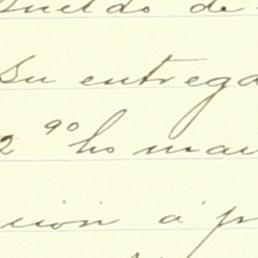 sueldo de
su entrega
2 90 ho man
ción á p